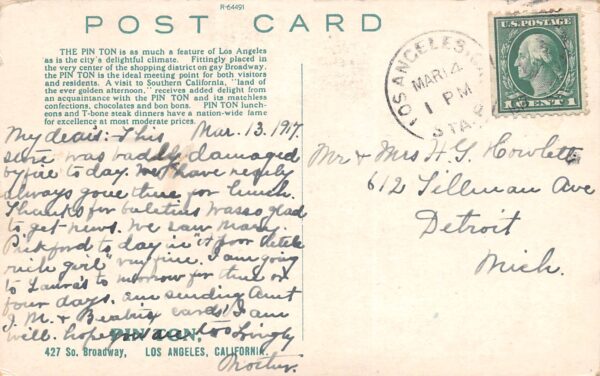 R-64491
POST CARD
THE PIN TON is as much a feature of Los Angeles
as is the city's delightful climate. Fittingly placed in
the very center of the shopping district on gay Broadway,
the PIN TON is the ideal meeting point for both visitors
and residents. A visit to Southern California, "land of
the ever golden afternoon," receives added delight from
an acquaintance with the PIN TON and its matchless
confections, chocolates and bon bons. PIN TON lunch-
eons and T-bone steak dinners have a nation-wide fame
for excellence at most moderate prices.
My dears: This Mar. 13. 1917.
store was badly damaged
by fire to day. We have nearly
always gone there for lunch.
Thanks for bulletins was so glad
to get news. We saw Mary
Pickford to day in "A Poor Little
rich girl" very fine. I am going
to Laura's to morrow for three or
four days. am sending Aunt
J. M. & Beatrix cards. I am
well. hope you are too Lovingly
PIN TON,
427 So. Broadway, LOS ANGELES, CALIFORNIA.
LOS ANGELES
MAR 14
1 PM
STA.
U.S. POSTAGE
1 CENT 1
Mr & Mrs H. G. Howlett
612 Tillman Ave
Detroit
Mich.